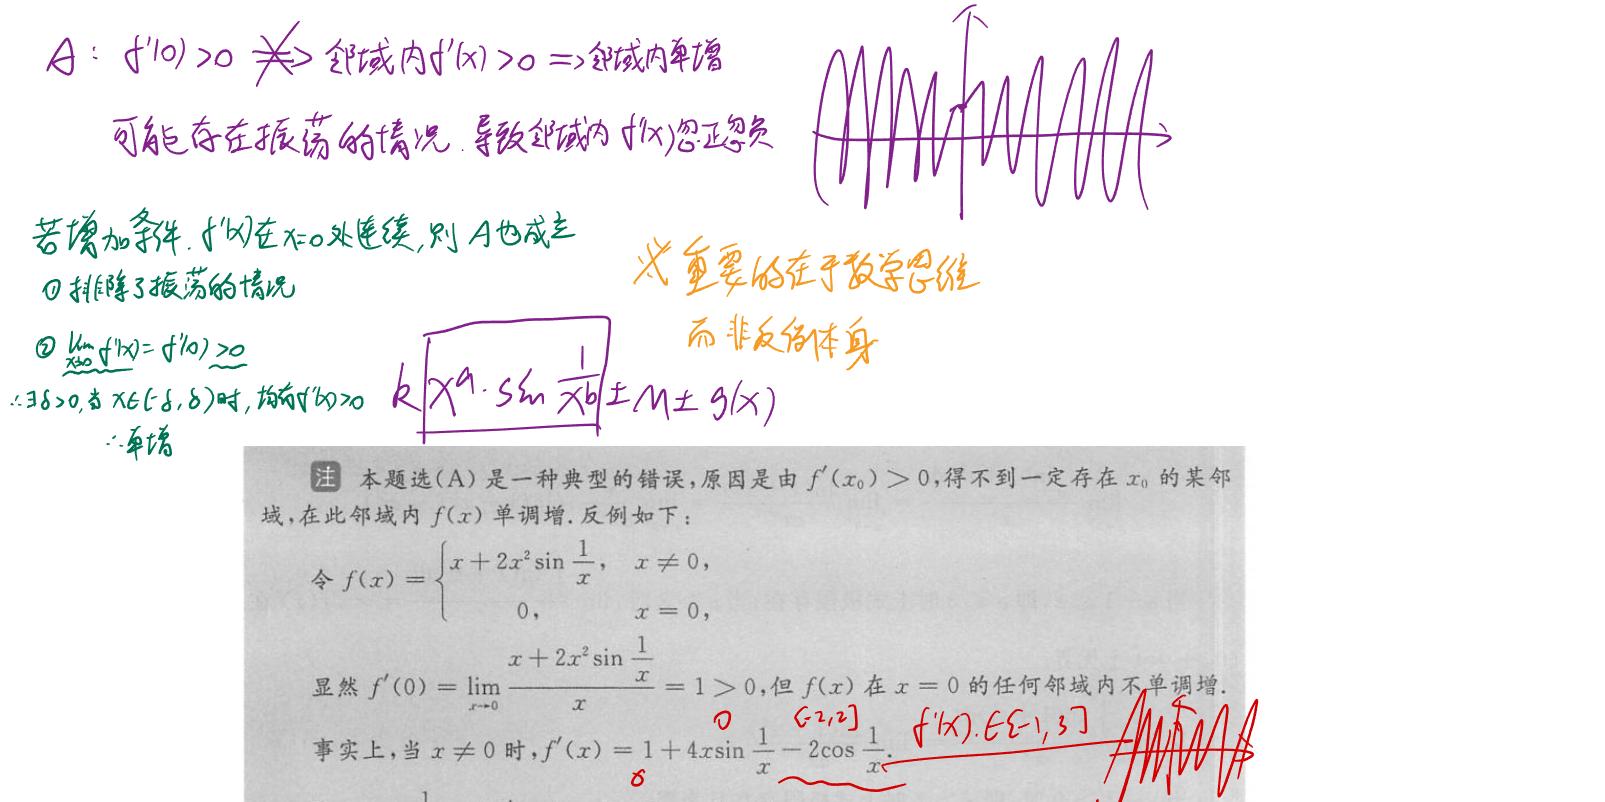 A: f'(0)>0 ≠> 邻域内f'(x)>0 => 邻域内单增
可能存在振荡的情况.导致邻域内 f'(x)忽正忽负
若增加条件.f'(x)在x=0处连续,则A也成立
①排除了振荡的情况
② lim x→0 f'(x)=f'(0)>0
∴∃δ>0,当x∈(-δ,δ)时,均有f'(x)>0
∴单增
※重要的在于数学思维
而非反例本身
k x^a·sin 1/x^b ± M ± g(x)
注 本题选(A)是一种典型的错误,原因是由 f'(x₀)>0,得不到一定存在 x₀ 的某邻
域,在此邻域内 f(x) 单调增.反例如下:
令 f(x) = { x + 2x² sin 1/x, x ≠ 0,
0, x = 0,
显然 f'(0) = lim x→0 (x + 2x² sin 1/x)/x = 1 > 0,但 f(x) 在 x = 0 的任何邻域内不单调增.
0 [-2,2] f'(x).∈[-1,3]
事实上,当 x ≠ 0 时,f'(x) = 1 + 4x sin 1/x − 2cos 1/x.